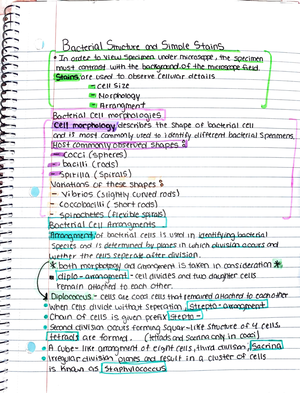 Bacterial Structure and Simple Stains
• In order to view specimen under microscope, the specimen
must contrast with the background of the microscope field.
Stains are used to observe cellular details
- Cell Size
- Morphology
- Arrangment
Bacterial Cell morphologies
Cell morphology describes the shape of bacterial cell
and is most commonly used to identify different bacterial specimens
Most commonly observed shapes:
- Cocci (spheres)
- bacilli (rods)
- Spirilla (Spirals)
Variations of these shapes:
- Vibrios (slightly curved rods)
- Coccobacilli (short rods)
- Spirochetes (flexible spirals)
Bacterial Cell Arrangments
Arrangment of bacterial cells is used in identifying bacterial
Species and is determined by planes in which division occurs and
wether the cells seperate after division.
* both morphology and arrangment is taken in consideration *
diplo-arrangment - cell divides and two daughter cells
remain attached to each other.
Diplococcus - cells are cocci cells that remained attached to each other
• When cells divide without seperation, Strepto-arrangment
• Chain of cells is given prefix Strepto-
• Second division occurs forming square-like structure of 4 cells,
tetrads are formed. (tetrads and Sarcina only in cocci)
• A cube-like arrangment of eight cells, third division, Sarcina
• Irregular division planes and result in a cluster of cells
is known as Staphylococcus